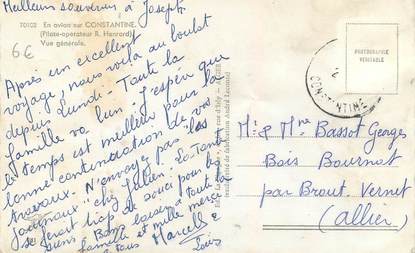 Meilleurs souvenirs à Joseph.
70102 En avion sur CONSTANTINE.
(Pilote-opérateur R. Henrard).
Vue générale.
6€
Après un excellent
voyage, nous voilà au boulot
depuis Lundi. Toute la
famille va bien. J'espère que
le temps est meilleur pour la
bonne continuation de vos
travaux. N'envoyez pas les
journaux chez Julien. La Tante
se ferait trop de souci pour les
siens. Bons baisers à toute la
famille et mille mercis
à tous Marcelle
Louis
PHOTOGRAPHIE
VERITABLE
CONSTANTINE
Mr & Mme Bassot Georges
Bois Bournat
par Brout Vernet
(Allier)